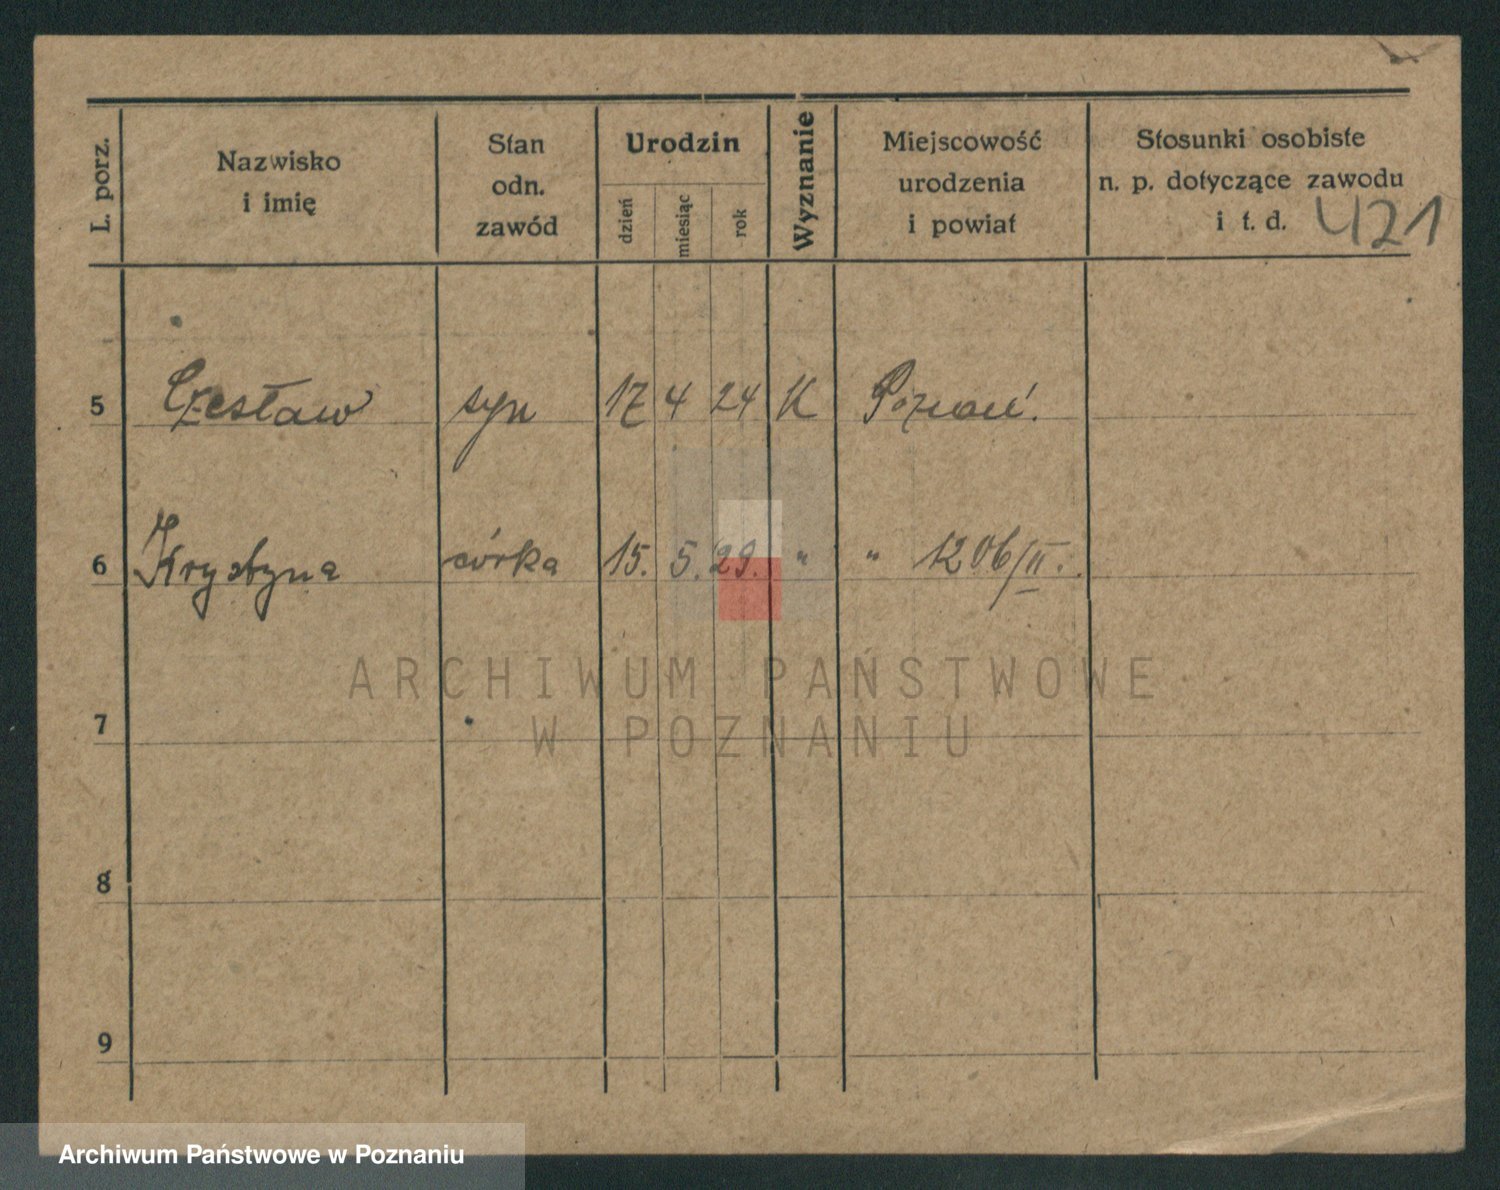 L. porz.
Nazwisko
i imię
Stan
odn.
zawód
Urodzin
dzień
miesiąc
rok
Wyznanie
Miejscowość
urodzenia
i powiat
Stosunki osobiste
n. p. dotyczące zawodu
i t. d.
421
5 Czesław syn 17 4 24 K Poznań.
6 Krystyna córka 15. 5. 29. " " 1206/II.
7
8
9
ARCHIWUM PAŃSTWOWE
W POZNANIU
Archiwum Państwowe w Poznaniu